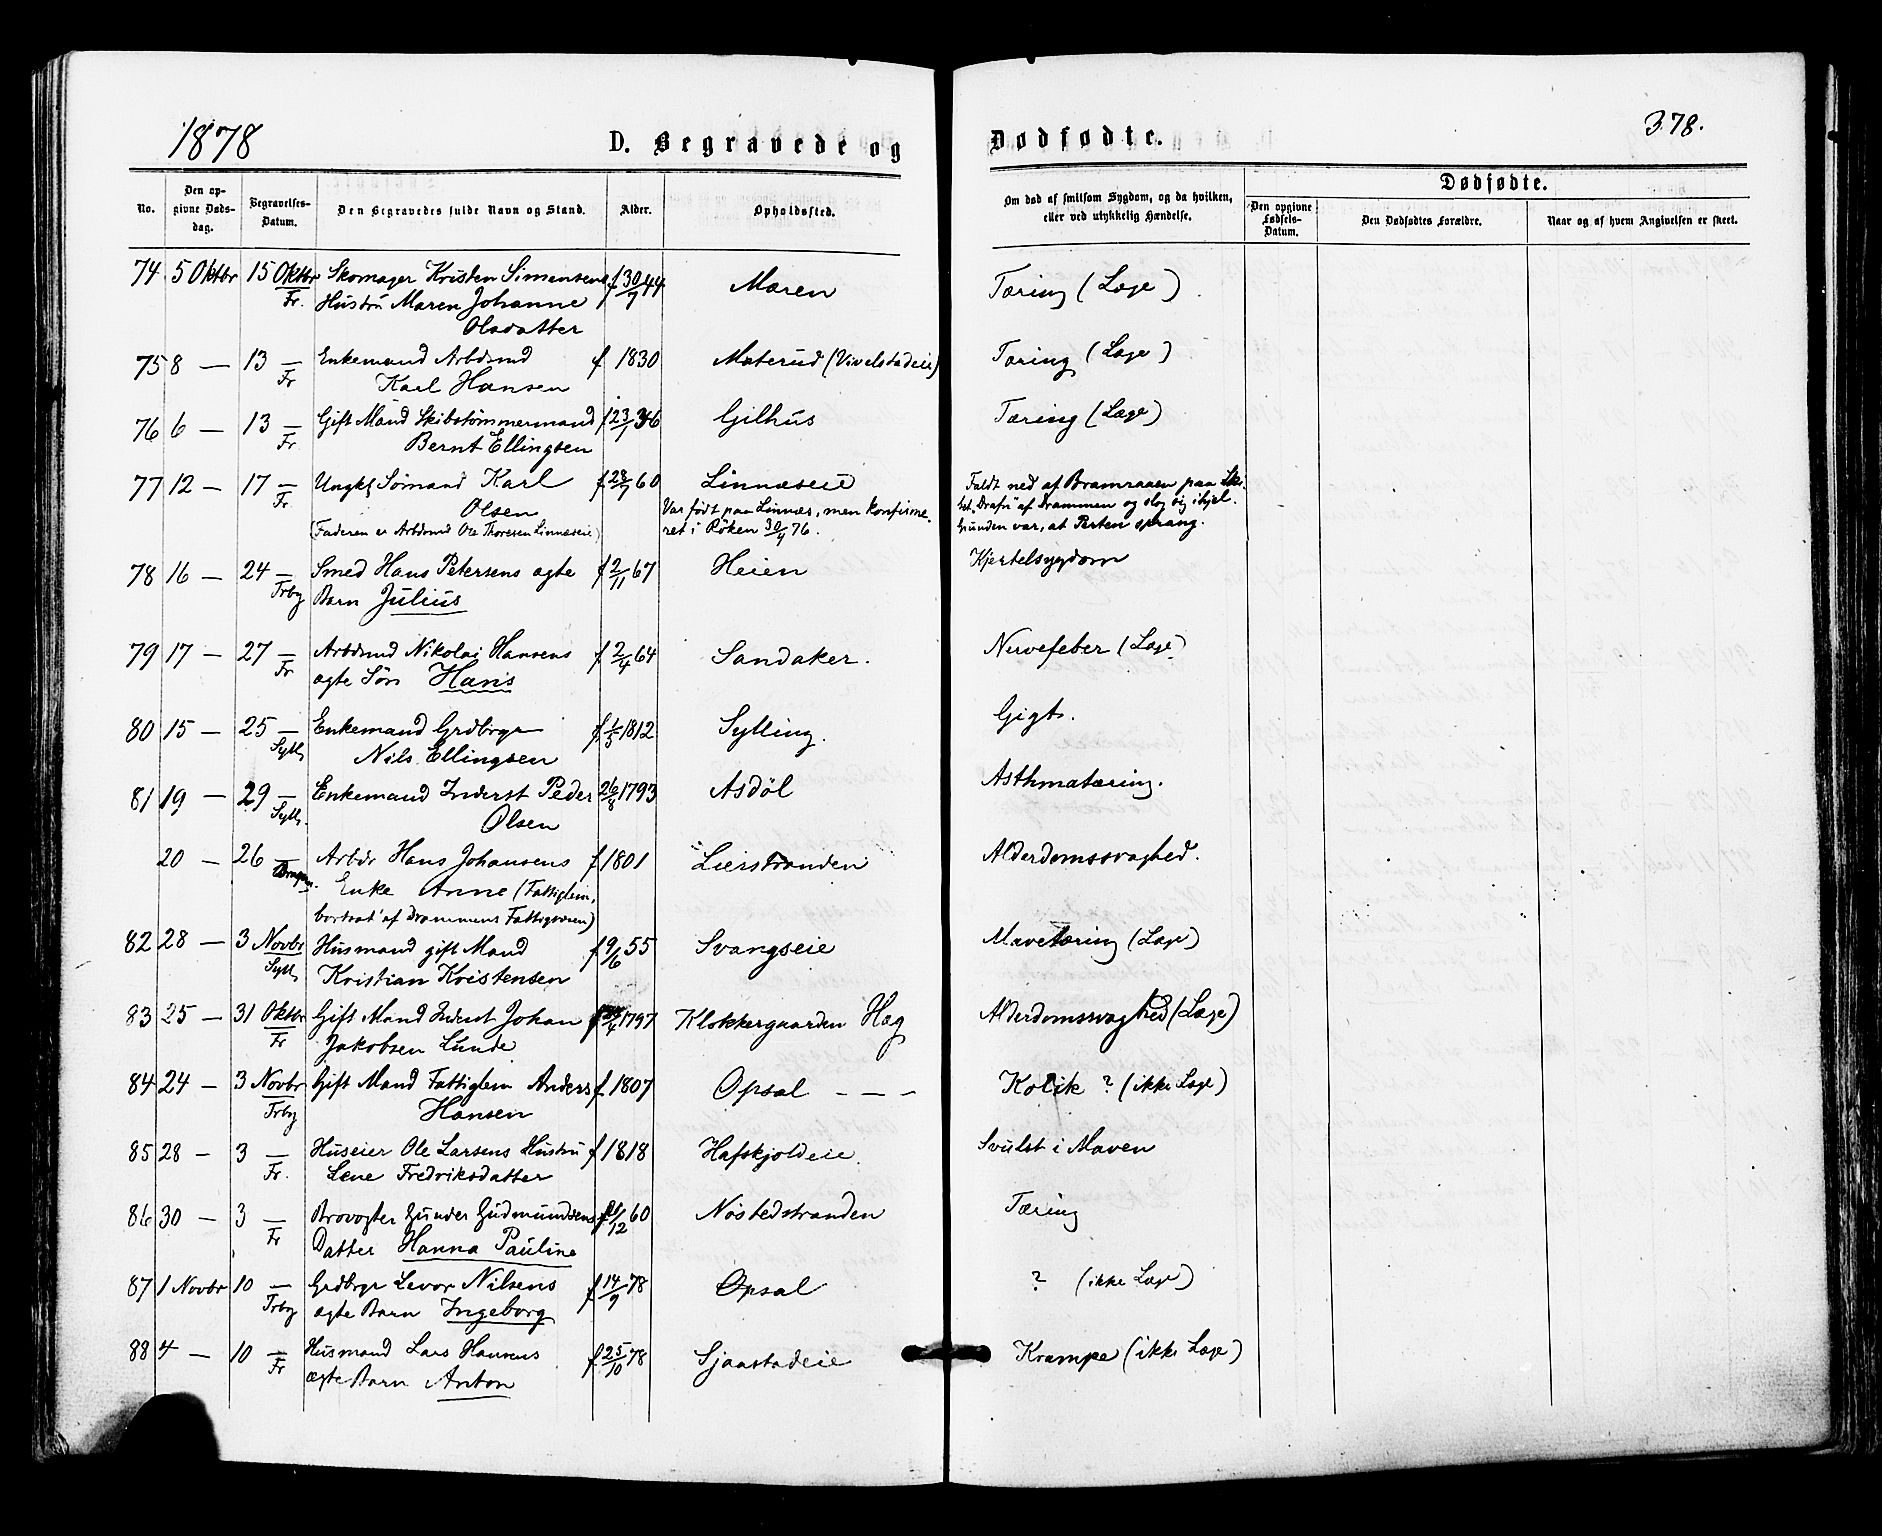 1878
D. Begravede og Dødfødte.
378.
No.
Den opgivne Døds-dag.
Begravelses-Datum.
Den Begravedes fulde Navn og Stand.
Alder.
Opholdssted.
Om død af smitsom Sygdom, og da hvilken, eller ved ulykkelig Hændelse.
Dødfødte.
Den opgivne Fødsels-Datum.
Den Dødfødtes Forældre.
Naar og af hvem Angivelsen er skeet.
74 5 Oktbr 15 Oktbr Skomager Kristen Simensens f 30/7 44 Mæren Tæring (Læge)
Fr. Hustru Maren Johanne
Olsdatter
75 8 — 13 — Enkemand Arbdsmd f 1830 Materud (Vivelstadeie) Tæring (Læge)
Fr Karl Hansen
76 6 — 13 — Gift Mand Skibstømmermand f 23/1 36 Gilhus Tæring (Læge)
Fr. Bernt Ellingsen
77 12 — 17 — Ungk. Sømand Karl f 28/7 60 Linnæseie Faldt ned af Bramraaen paa Ski-
Fr. Olsen Var født paa Linnæs, men konfirme- bet "Drafn" af Drammen og slog sig ihjel.
(Faderen er Arbdsmd Ole Thoresen Linnæseie) ret i Røken 30/4 76. Grunden var, at Perten sprang.
78 16 — 24 — Smed Hans Petersens ægte f 2/11 67 Heien Kjertelsygdom
Frby Barn Julius
79 17 — 27 — Arbdsmd Nikolai Hansens f 2/4 64 Sandaker. Nervefeber (Læge)
Fr ægte Søn Hans
80 15 — 25 — Enkemand Grdbrgr f. 1/5 1812 Sylling. Gigt.
Syll. Nils Ellingsen
81 19 — 29 — Enkemand Inderst Peder 26/8 1793 Asdøl Asthmatæring.
Syll. Olsen
20 — 26 — Arbdr Hans Johansens f 1801 Lierstranden Alderdomssvaghed.
Enke Anne (Fattiglem,
bortsat af Drammens Fattigvæsen)
82 28 — 3 Novbr Husmand gift Mand f 9/6 55 Svangseie Mavetæring (Læge)
Syll Kristian Kristensen
83 25 — 31 Oktbr Gift Mand Inderst Johan 1797 Klokkergaarden Hæg Alderdomssvaghed (Læge)
Fr Jakobsen Lunde
84 24 — 3 Novbr Gift Mand Fattiglem Anders f. 1807 Opsal — — — Kolik ? (ikke Læge)
Frby Hansen
85 28 — 3 — Huseier Ole Larsens Hustru f 1818 Hafskjoldeie Svulst i Maven
Fr. Lene Fredriksdatter
86 30 — 3 — Brovogter Gunder Gudmundsens /12 60 Nøstedstranden Tæring
Fr Datter Hanna Pauline
87 1 Novbr 10 — Grdbrgr Levor Nilsens f 14/9 78 Opsal ? (ikke Læge)
Frby ægte Barn Ingeborg
88 4 — 10 — Husmand Lars Hansens f. 25/10 78 Sjaastadeie Krampe (ikke Læge)
Fr ægte Barn Anton